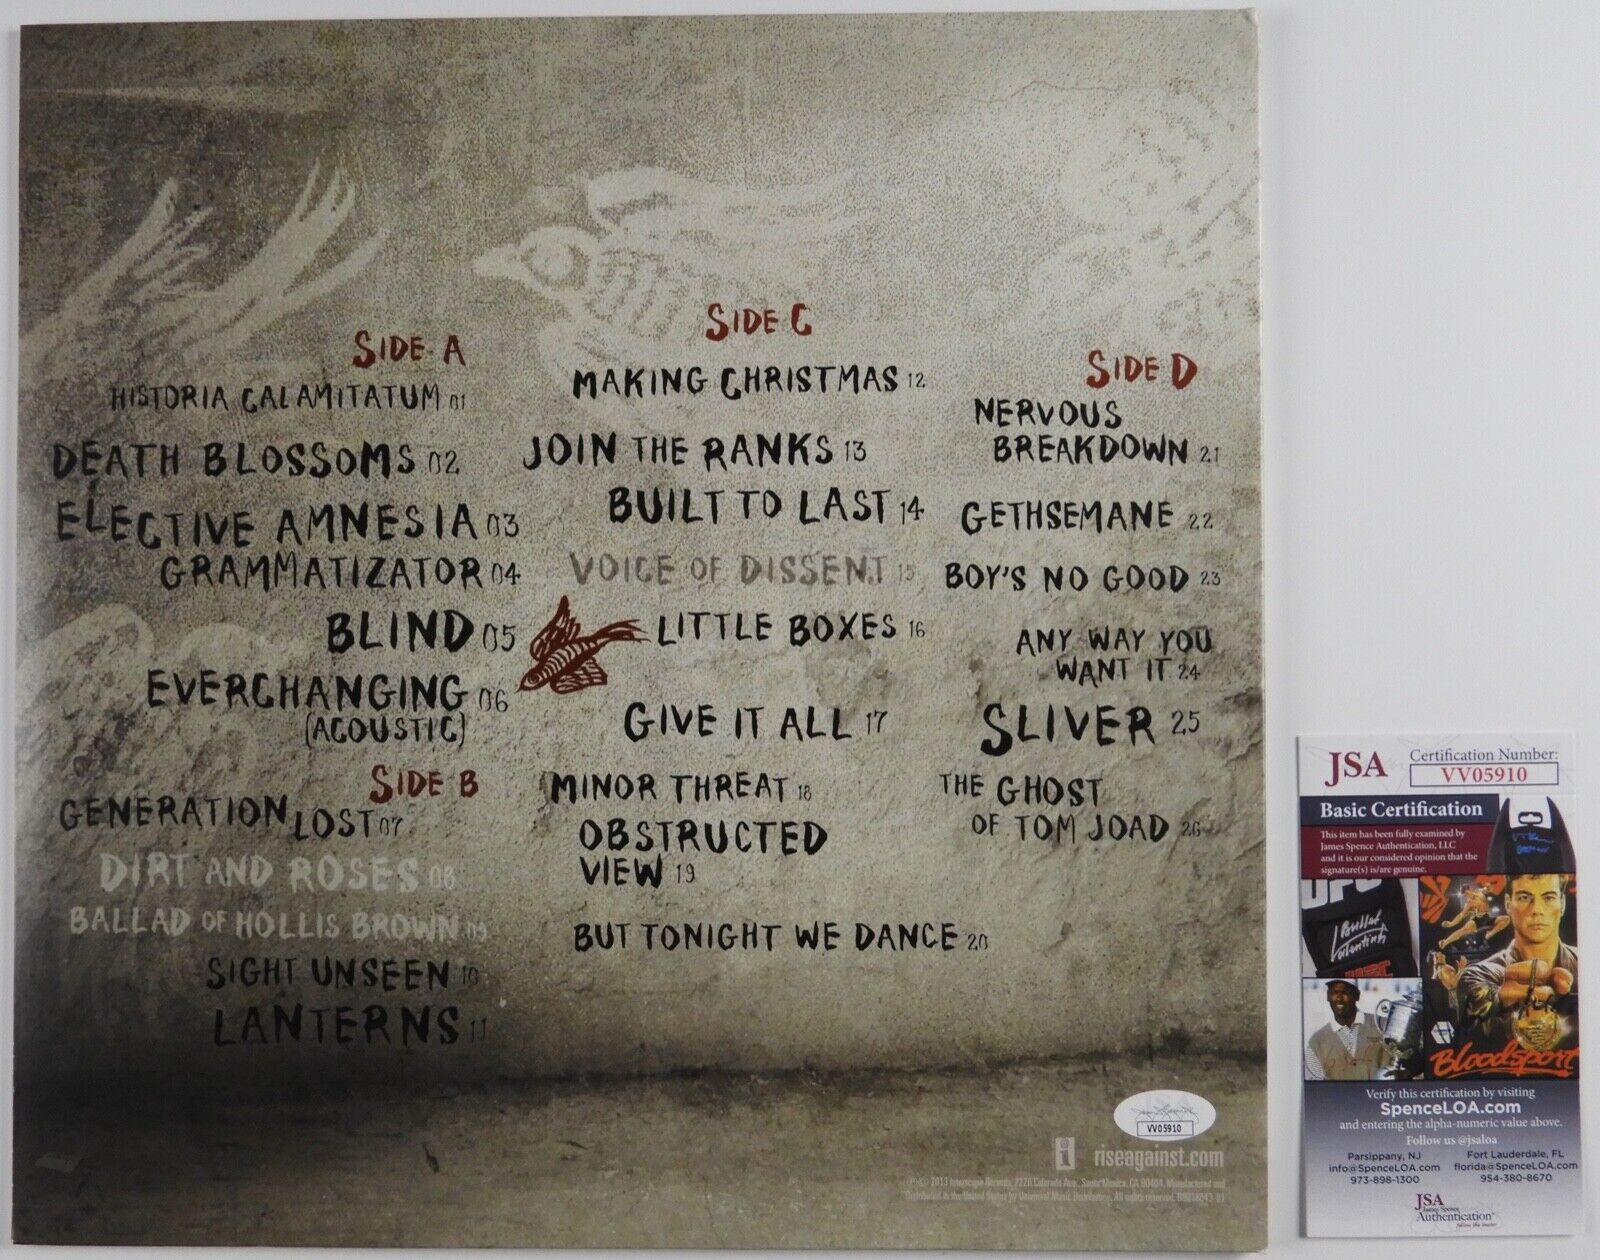 SIDE A
HISTORIA CALAMITATUM 01
DEATH BLOSSOMS 02
ELECTIVE AMNESIA 03
GRAMMATIZATOR 04
BLIND 05
EVERCHANGING 06
(ACOUSTIC)
SIDE B
GENERATION LOST 07
DIRT AND ROSES 08
BALLAD OF HOLLIS BROWN 09
SIGHT UNSEEN 10
LANTERNS 11
SIDE C
MAKING CHRISTMAS 12
JOIN THE RANKS 13
BUILT TO LAST 14
VOICE OF DISSENT 15
LITTLE BOXES 16
GIVE IT ALL 17
MINOR THREAT 18
OBSTRUCTED
VIEW 19
BUT TONIGHT WE DANCE 20
SIDE D
NERVOUS
BREAKDOWN 21
GETHSEMANE 22
BOY'S NO GOOD 23
ANY WAY YOU
WANT IT 24
SLIVER 25
THE GHOST
OF TOM JOAD 26
VV05910
i riseagainst.com
℗© 2013 Interscope Records, 2220 Colorado Ave., Santa Monica, CA 90404. Manufactured and
Distributed in the United States by Universal Music Distribution. All rights reserved.
JSA
Certification Number:
VV05910
Basic Certification
This item has been fully examined by
James Spence Authentication, LLC
and it is our considered opinion that the
signature(s) is/are genuine.
UFC
Bloodsport
Verify this certification by visiting
SpenceLOA.com
and entering the alpha-numeric value above.
Follow us @jsaloa
Parsippany, NJ
info@SpenceLOA.com
973-898-1300
Fort Lauderdale, FL
florida@SpenceLOA.com
954-380-8670
JSA
James Spence
Authentication